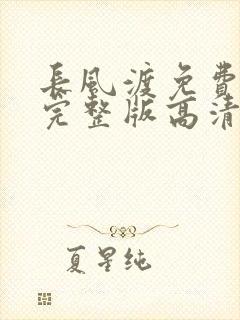 長風渡免費
完整版高清
夏星纯